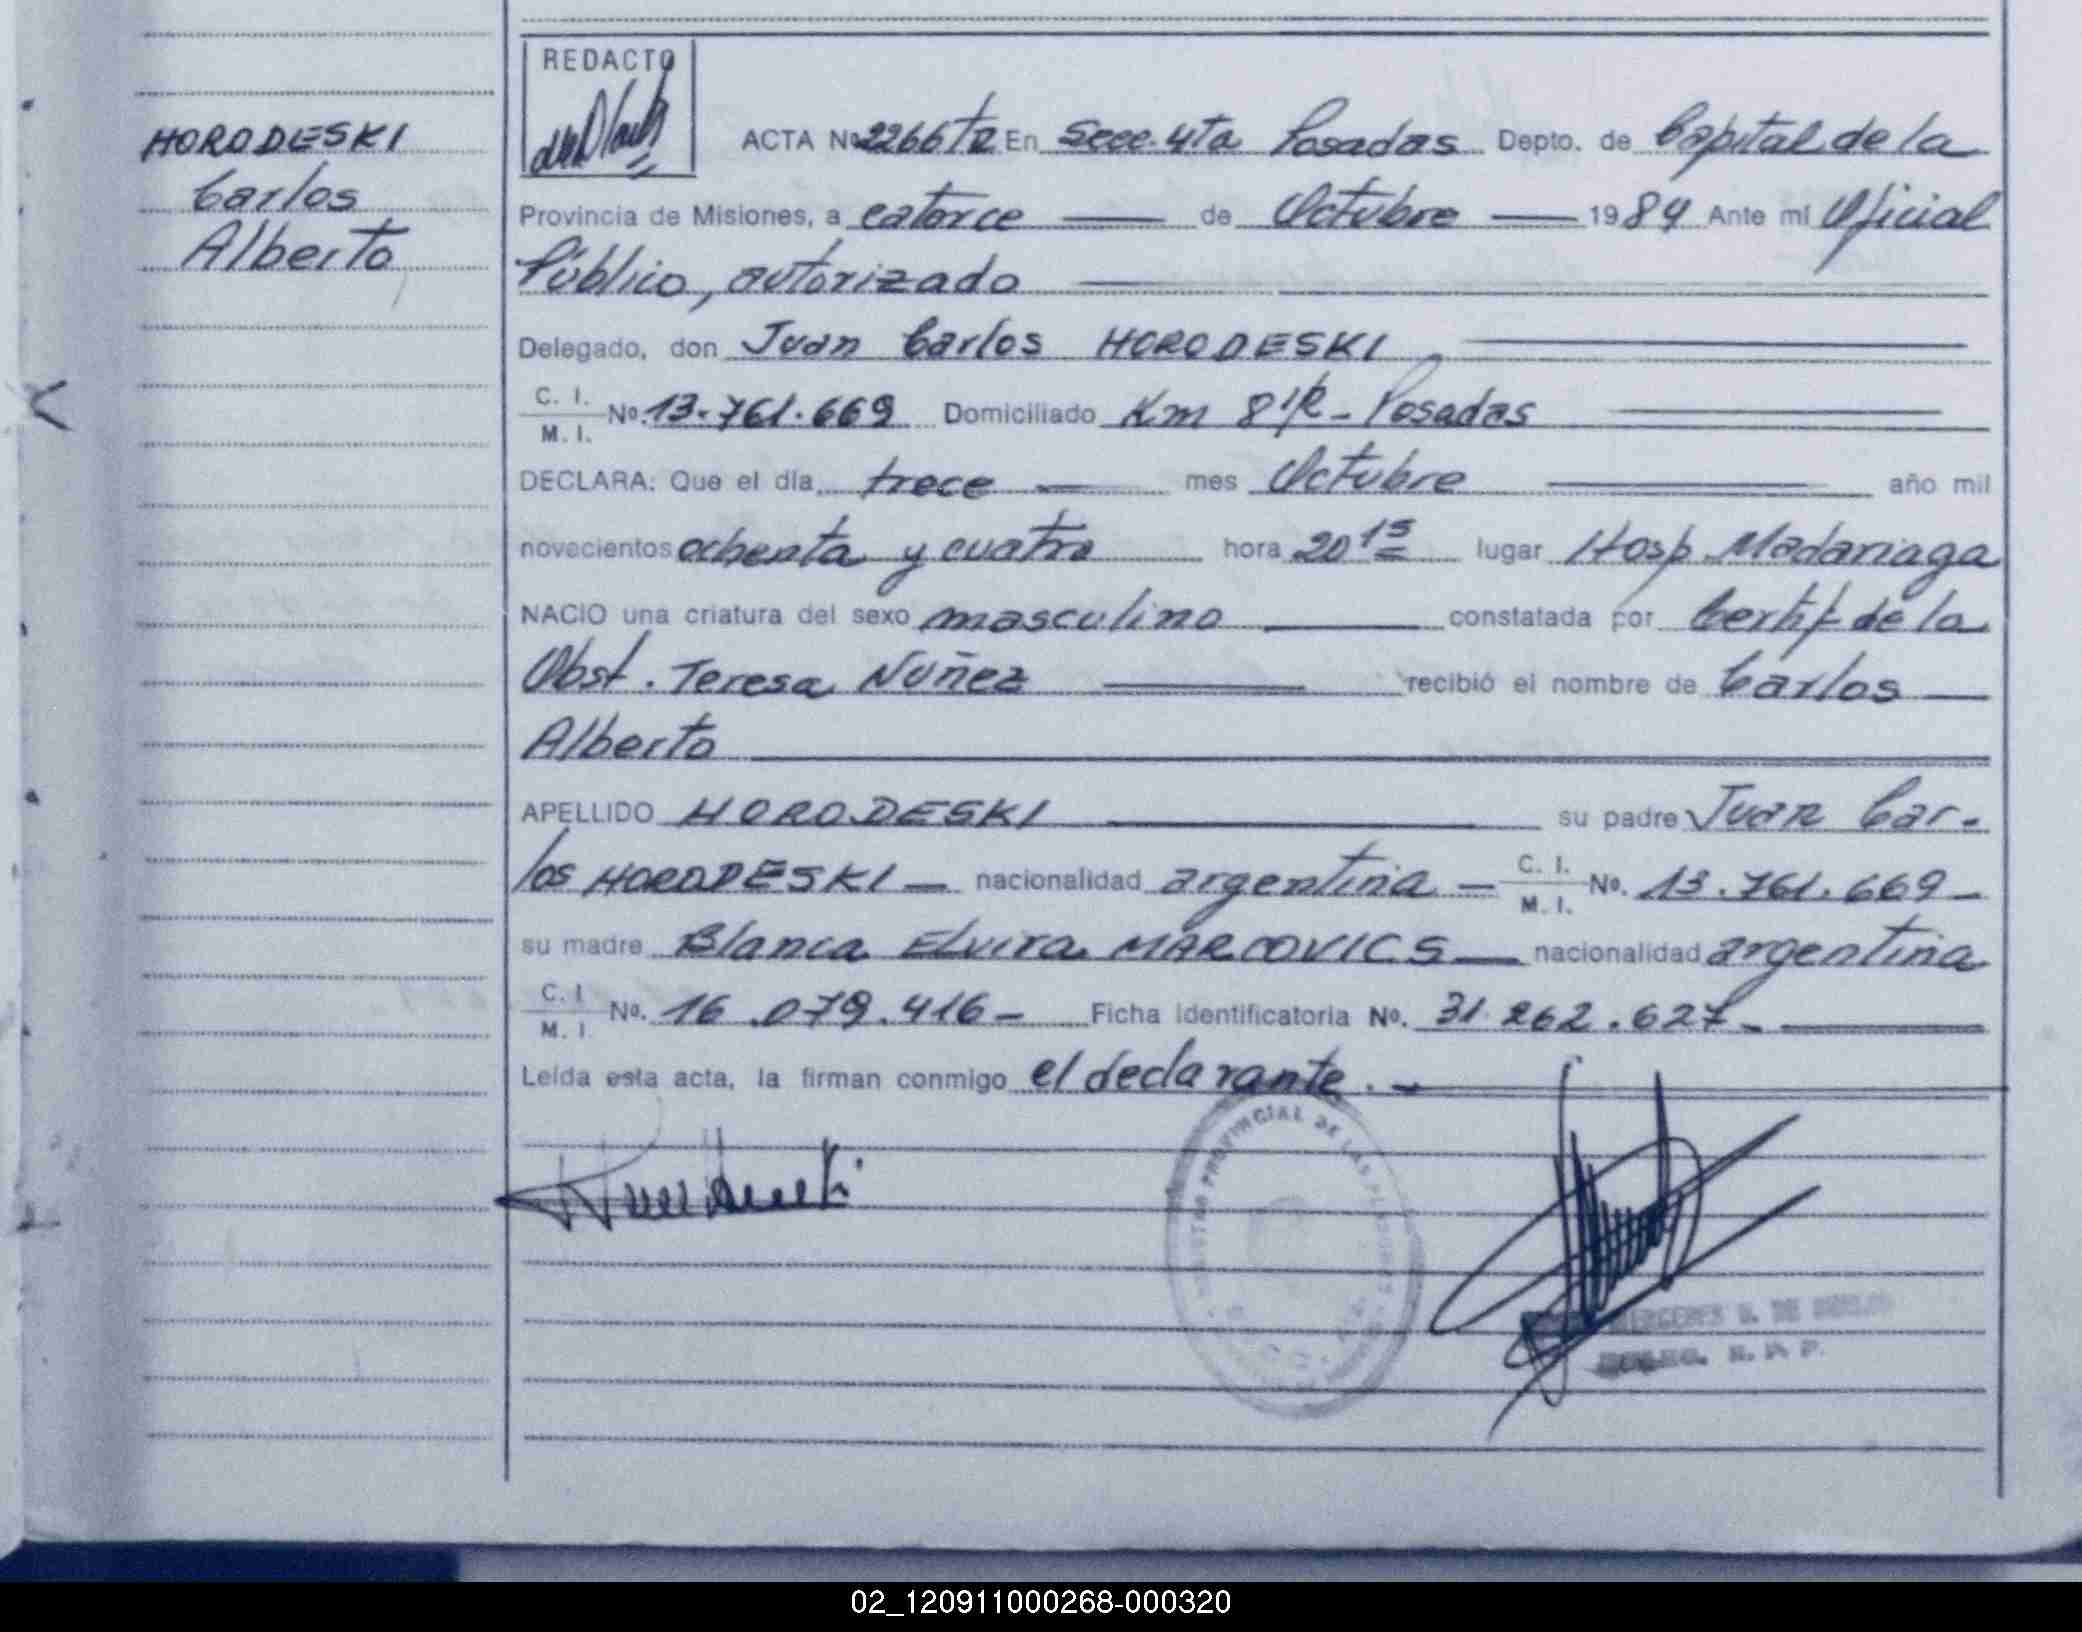 HORODESKI
Carlos
Alberto
REDACTO
ACTA Nº 2266 En Secc. 4ta Posadas Depto. de Capital de la
Provincia de Misiones, a catorce de Octubre 1984 Ante mi Oficial
Público, autorizado
Delegado, don Juan Carlos HORODESKI
C. I.
M. I. Nº. 13.761.669 Domiciliado Km 8 1/2 - Posadas
DECLARA: Que el día trece mes Octubre año mil
novecientos ochenta y cuatro hora 20 15 lugar Hosp. Madariaga
NACIO una criatura del sexo masculino constatada por Certif. de la
Obst. Teresa Nuñez recibió el nombre de Carlos
Alberto
APELLIDO HORODESKI su padre Juan Car-
los HORODESKI - nacionalidad argentina - C. I.
M. I. Nº. 13.761.669 -
su madre Blanca Elvira MARCOVICS nacionalidad argentina
C. I
M. I. Nº. 16.079.416 - Ficha Identificatoria Nº. 31.262.627 -
Leída esta acta, la firman conmigo el declarante. -
PROVINCIAL DE LAS PERSONAS
02_120911000268-000320